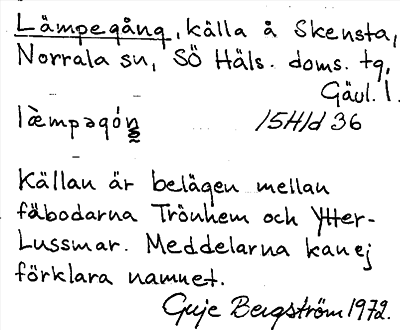 Lämpegång, källa å Skensta,
Norrala sn, SÖ Häls. doms. tg,
Gävl. l.
lὲmpəgóŋ 15H1d 36
Källan är belägen mellan
fäbodarna Trönhem och Ytter-
Lussmar. Meddelarna kan ej
förklara namnet.
Guje Bergström 1972.